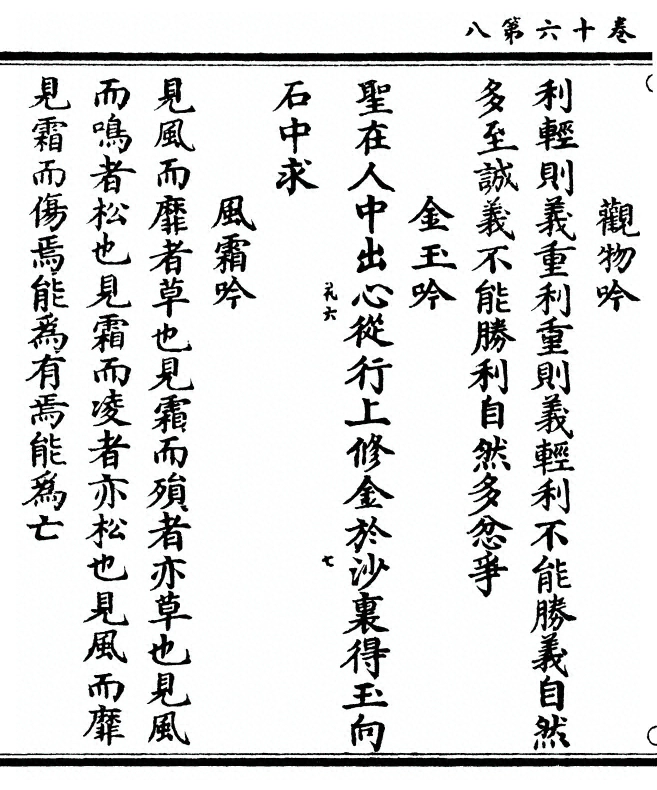 卷十六第八
觀物吟
利輕則義重利重則義輕利不能勝義自然
多至誠義不能勝利自然多忿爭
金玉吟
聖在人中出心從行上修金於沙裏得玉向
石中求
風霜吟
見風而靡者草也見霜而殞者亦草也見風
而鳴者松也見霜而凌者亦松也見風而靡
見霜而傷焉能為有焉能為亡